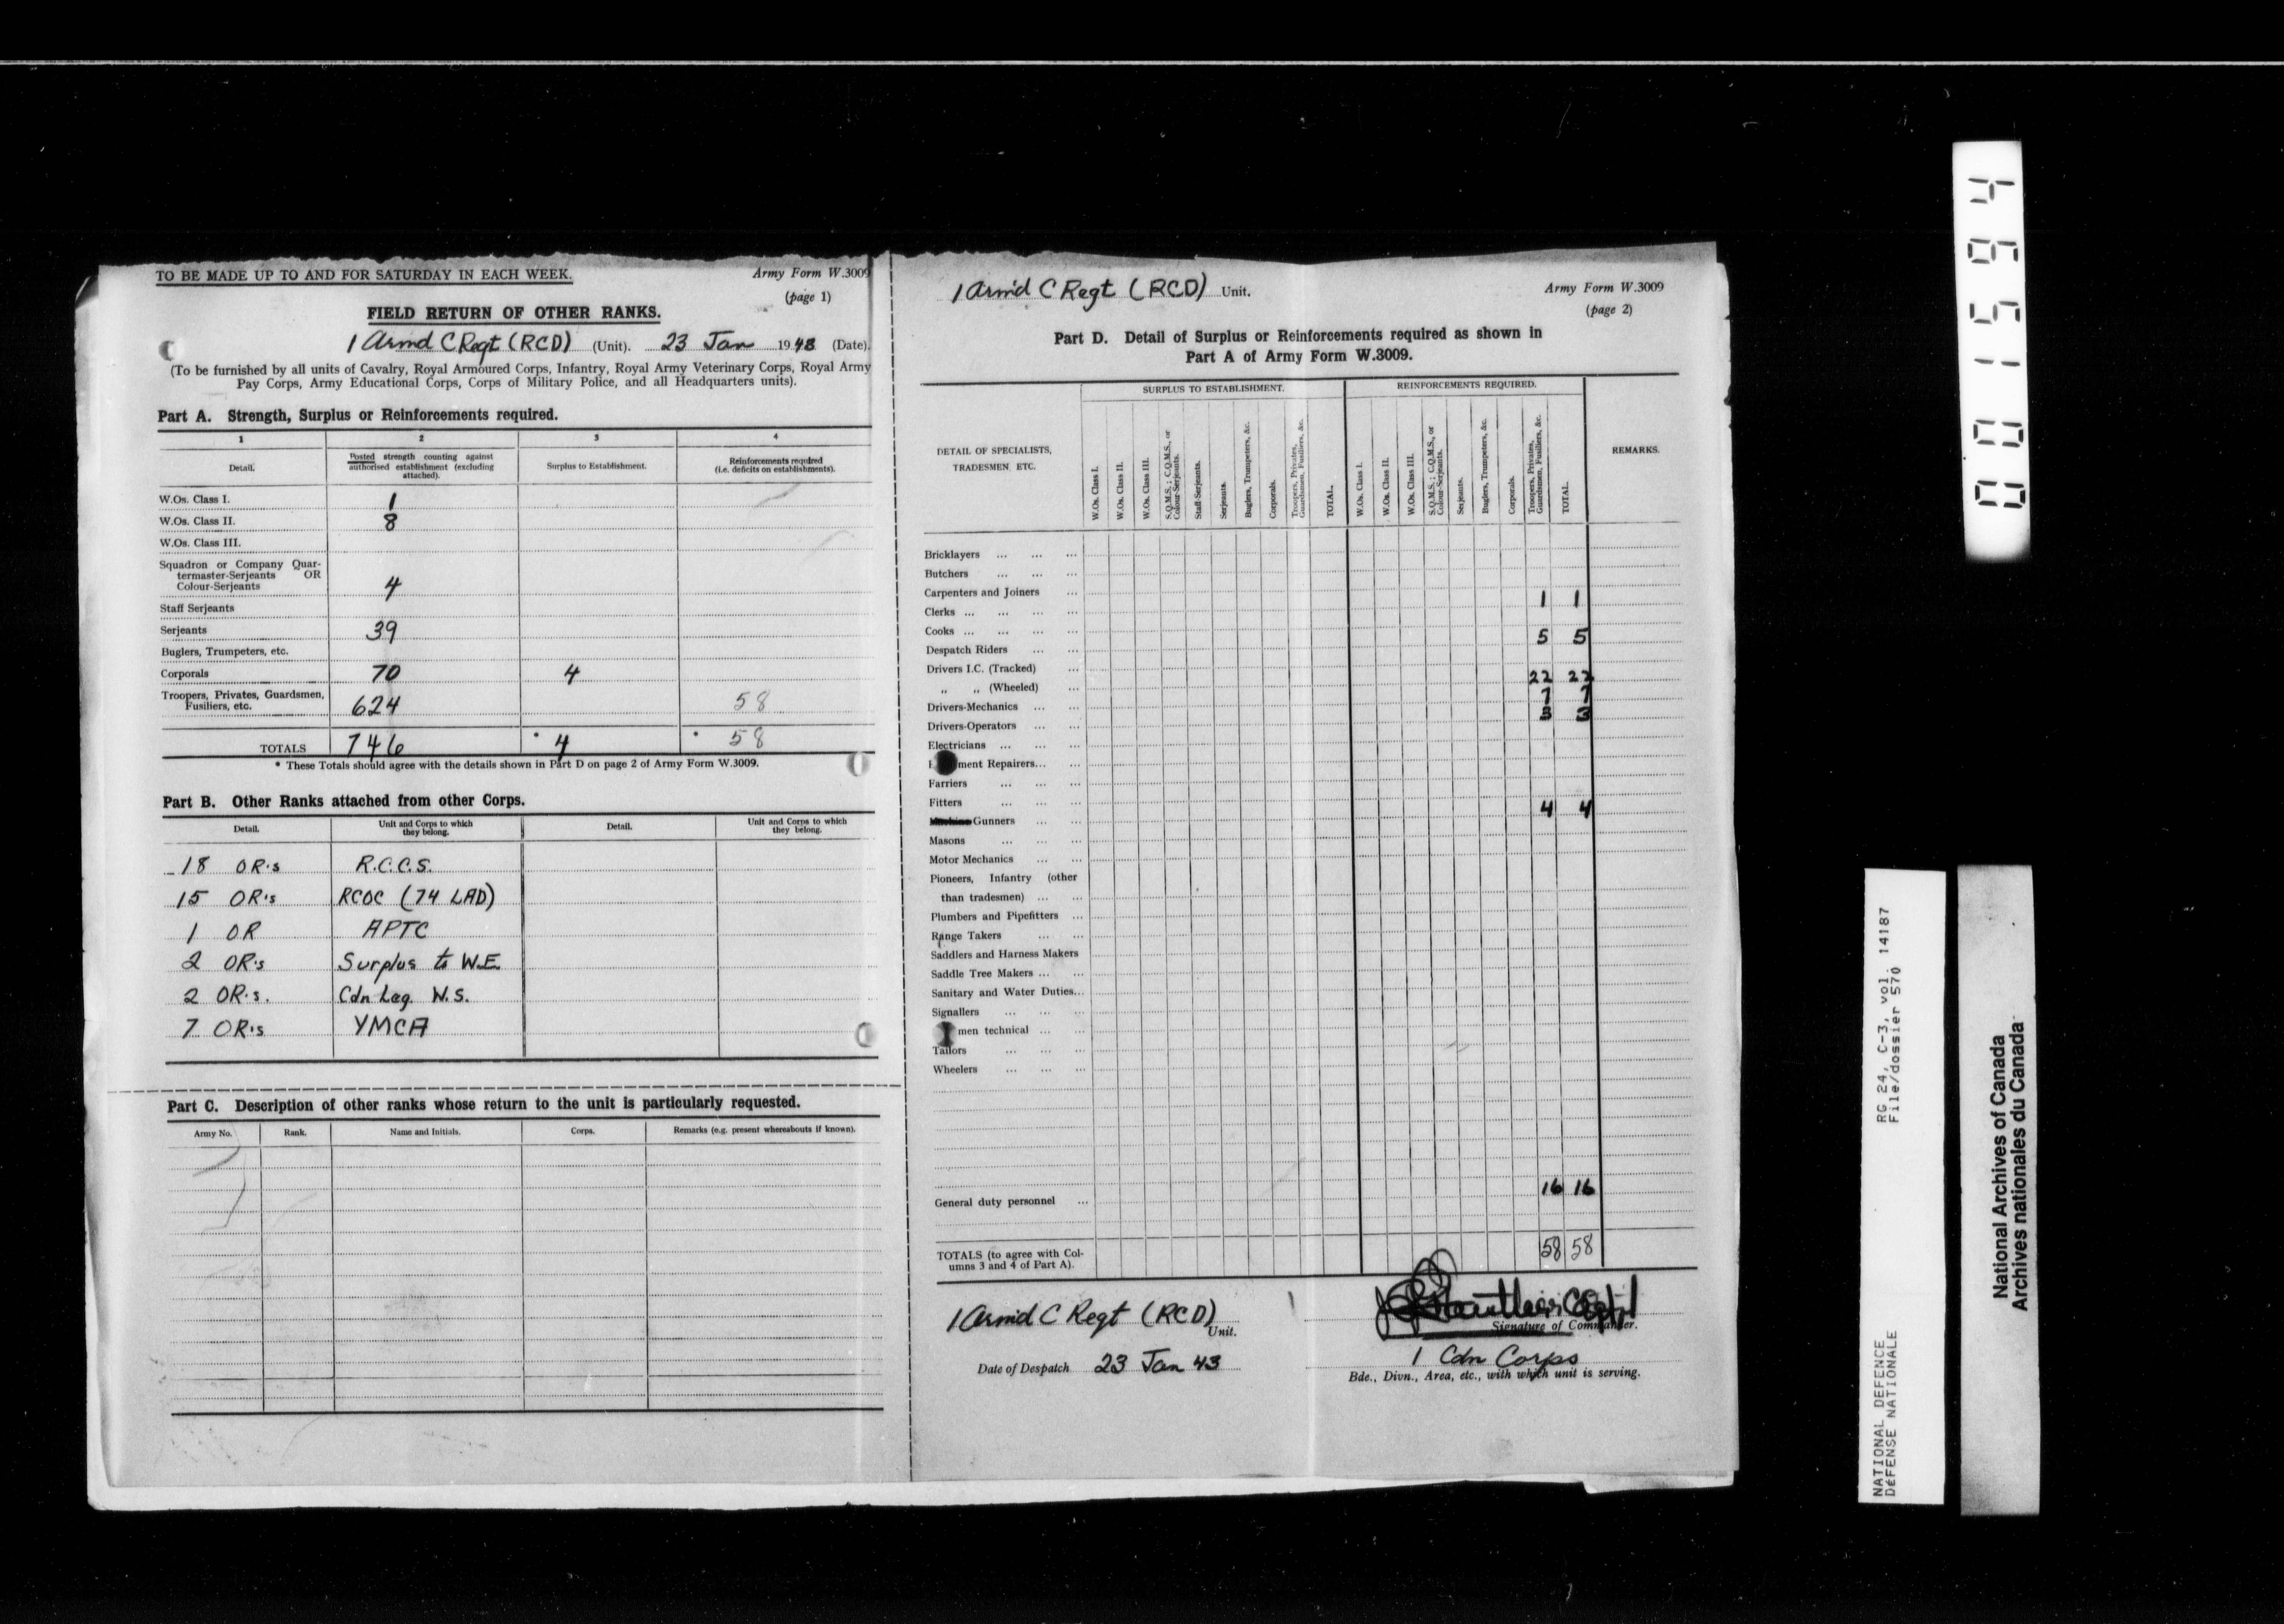 TO BE MADE UP TO AND FOR SATURDAY IN EACH WEEK.
Army Form W.3009
(page 1)
FIELD RETURN OF OTHER RANKS.
1 Armd C Regt (RCD) (Unit). 23 Jan 1943 (Date).
(To be furnished by all units of Cavalry, Royal Armoured Corps, Infantry, Royal Army Veterinary Corps, Royal Army
Pay Corps, Army Educational Corps, Corps of Military Police, and all Headquarters units).
Part A. Strength, Surplus or Reinforcements required.
1 2 3 4
Detail.
Posted strength counting against
authorised establishment (excluding
attached).
Surplus to Establishment.
Reinforcements required
(i.e. deficits on establishments).
W.Os. Class I. 1
W.Os. Class II. 8
W.Os. Class III.
Squadron or Company Quar-
termaster-Serjeants OR
Colour-Serjeants 4
Staff Serjeants
Serjeants 39
Buglers, Trumpeters, etc.
Corporals 70 4
Troopers, Privates, Guardsmen,
Fusiliers, etc. 624 58
TOTALS 746 * 4 * 58
* These Totals should agree with the details shown in Part D on page 2 of Army Form W.3009.
Part B. Other Ranks attached from other Corps.
Detail.
Unit and Corps to which
they belong.
Detail.
Unit and Corps to which
they belong.
18 OR's R.C.C.S.
15 OR's RCOC (74 LAD)
1 OR APTC
2 OR's Surplus to W.E.
2 OR's. Cdn Leg. W.S.
7 OR's YMCA
Part C. Description of other ranks whose return to the unit is particularly requested.
Army No. Rank. Name and Initials. Corps. Remarks (e.g. present whereabouts if known).
1 Armd C Regt (RCD) Unit.
Army Form W.3009
(page 2)
Part D. Detail of Surplus or Reinforcements required as shown in
Part A of Army Form W.3009.
DETAIL OF SPECIALISTS,
TRADESMEN ETC.
SURPLUS TO ESTABLISHMENT.
W.Os. Class I.
W.Os. Class II.
W.Os. Class III.
S.Q.M.S.; C.Q.M.S., or
Colour-Serjeants.
Staff-Serjeants.
Serjeants.
Buglers, Trumpeters, &c.
Corporals.
Troopers, Privates,
Guardsmen, Fusiliers, &c.
TOTAL.
REINFORCEMENTS REQUIRED.
W.Os. Class I.
W.Os. Class II.
W.Os. Class III.
S.Q.M.S.; C.Q.M.S., or
Colour-Serjeants.
Serjeants.
Buglers, Trumpeters, &c.
Corporals.
Troopers, Privates,
Guardsmen, Fusiliers, &c.
TOTAL.
REMARKS.
Bricklayers ... ... ...
Butchers ... ... ...
Carpenters and Joiners ...
Clerks ... ... ... ... 1 1
Cooks ... ... ... ...
Despatch Riders ... ... 5 5
Drivers I.C. (Tracked) ...
„ „ (Wheeled) ... 22 22
Drivers-Mechanics ... ... 7 7
Drivers-Operators ... ... 3 3
Electricians ... ... ...
ment Repairers... ...
Farriers ... ... ...
Fitters ... ... ...
Gunners ... ... 4 4
Masons ... ... ...
Motor Mechanics ... ...
Pioneers, Infantry (other
than tradesmen) ... ...
Plumbers and Pipefitters ...
Range Takers ... ...
Saddlers and Harness Makers
Saddle Tree Makers ... ...
Sanitary and Water Duties...
Signallers ... ... ...
men technical ... ...
Tailors ... ... ...
Wheelers ... ... ...
General duty personnel ... 16 16
TOTALS (to agree with Col-
umns 3 and 4 of Part A). 58 58
1 Armd C Regt (RCD)
Unit.
Capt
Signature of Commander.
Date of Despatch 23 Jan 43
1 Cdn Corps
Bde., Divn., Area, etc., with which unit is serving.
0001594
RG 24, C-3, vol. 14187
File/dossier 570
NATIONAL DEFENCE
DÉFENSE NATIONALE
National Archives of Canada
Archives nationales du Canada